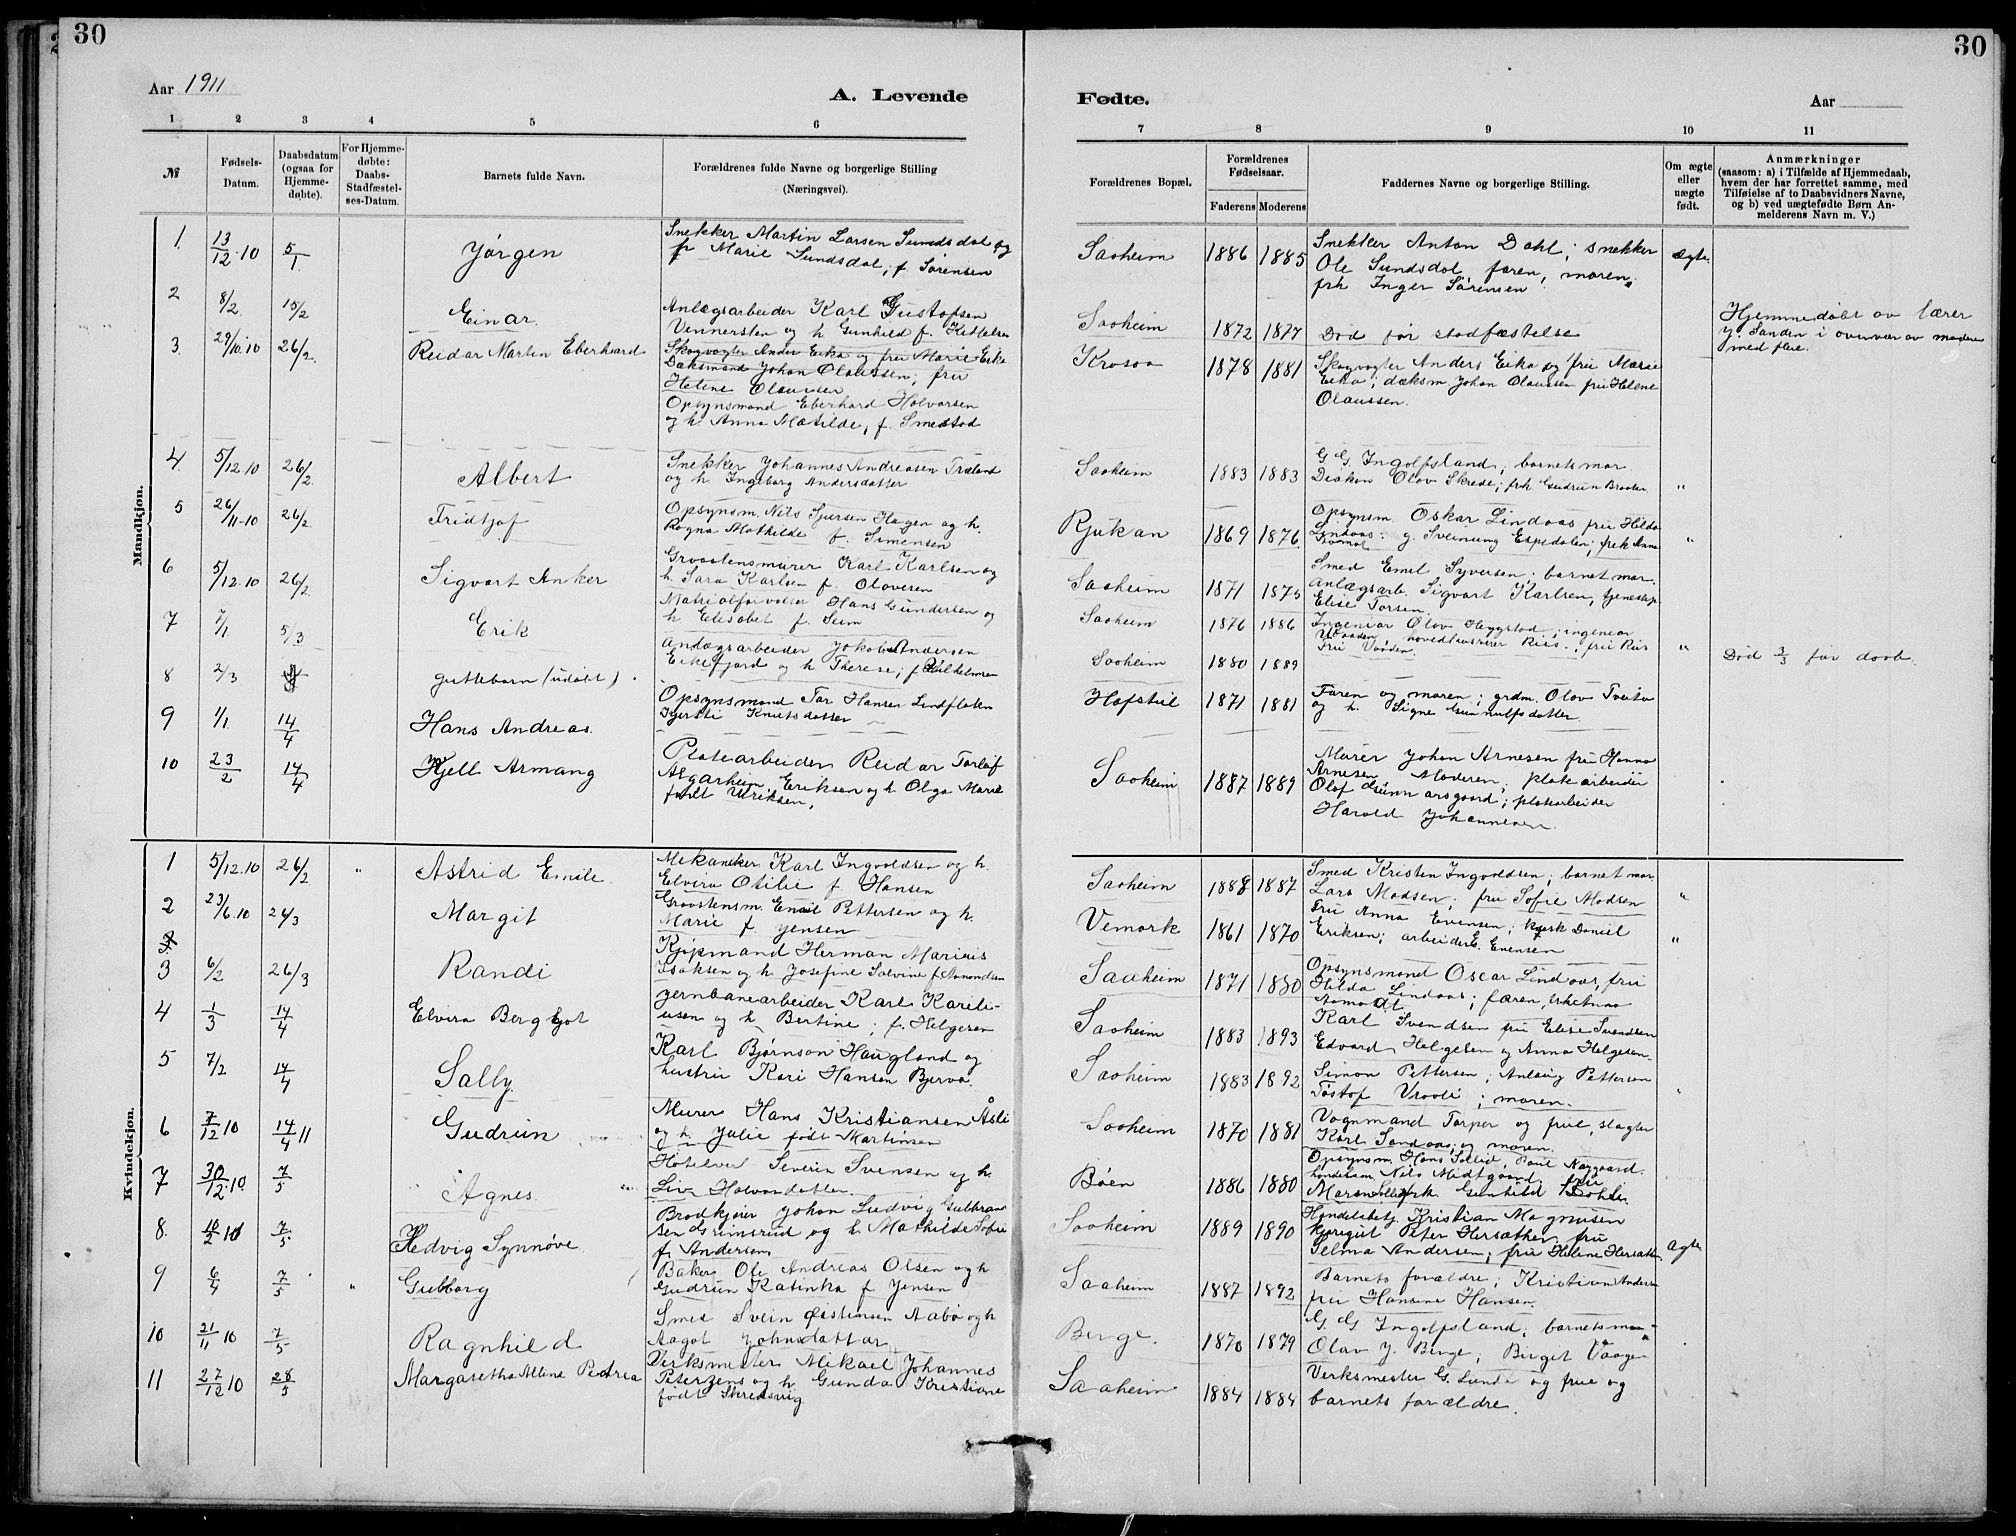 30
30
Aar 1911
A. Levende
Fødte.
Aar
1 2 3 4 5 6 7 8 9 10 11
№
Fødsels-Datum.
Daabsdatum (ogsaa for Hjemme-døbte).
For Hjemme-døbte: Daabs-Stadfæstel-ses-Datum.
Barnets fulde Navn.
Forældrenes fulde Navne og borgerlige Stilling
(Næringsvei).
Forældrenes Bopæl.
Forældrenes Fødselsaar.
Faderens Moderens
Faddernes Navne og borgerlige Stilling.
Om ægte eller uægte født.
Anmærkninger
(saasom: a) i Tilfælde af Hjemmedaab,
hvem der har forrettet samme, med
Tilføielse af to Daabsvidners Navne,
og b) ved uægtefødte Børn An-
melderens Navn m. V.)
Mandkjøn.
1. 13/12-10 5/1. Jørgen
Snekker Martin Larsen Sundsdal og
fr Marie Sundsdal, f. Sørensen
Saaheim 1886 1885
Snekker Anton Dahl; snekker
Ole Sundsdal, faren, moren,
frk Inger Sørensen
ægte
2 8/2. 15/2 Einar.
Anlægsarbeider Karl Gustafsen
Vennersten og h. Gunhild f. Kittelsen
Saaheim 1872 1877
Død før stadfæstelse
Hjemmedøbt av lærer
J. Sanden i overvær av moderen
med flere.
3. 29/10.10 26/2. Reidar Martin Eberhard
Skogvogter Anders Eika og fru Marie Eika
Dæksmand Johan Olaussen; fru
Helene Olaussen
Opsynsmand Eberhard Halvorsen
og h. Anna Matilde, f. Smedstad
Krosso 1878 1881
Skogvogter Anders Eika og fru Marie
Eika; dæksm Johan Olaussen fru Helene
Olaussen.
4. 5/12.10 26/2. Albert
Snekker Johannes Andreasen Træland
og h Ingeborg Andersdatter
Saaheim 1883 1883
G. G. Ingolfsland; barnets mor
Diakon Olav Skrede; frk. Gudrun Braaten
"
5 26/11-10 26/2. Fridtjof
Opsynsm. Nils Sjursen Hagen og h.
Ragna Mathilde f. Simensen
Rjukan 1869 1876.
Opsynsm. Oskar Lindaas fru Hilda
Lindaas: g. Sveinung Espedalen; frk Anna
Aamot
"
6 5/12.10 26/2. Sigvart Anker
Graastensmurer Karl Karlsen og
h. Sara Karlsen f. Olavesen
Saaheim 1871 1875
Smed Emil Syversen; barnet mor.
Anlægsarb. Sigvart Karlsen, tjenestep.
Elise Torsen.
7 7/1 5/3 Erik
Matrialforvalter Hans Gundersen og
h Elisabet f. Seim
Saaheim 1876 1886
Ingeniør Olov Heggstad; ingeniør
Vaaden, hovedkasserer Riis.; fru Riis
Fru Vaaden.
"
8 2/3 guttebarn (udøbt).
Andægsarbeider Jakob Andersen
Eikefjord og h Therese; f. Vilhelmsen
Saaheim 1880 1889
Død 3/3 før daab.
9 1/1. 14/4 Hans Andreas.
Opsynsmand Tor Hansen Lindflaten
Kjersti Knutsdatter
Hofstul 1871 1881
Faren og moren; grdm. Olav Tveito
og h. Signe Gunnulfsdatter
10 23/2 14/4 Kjell Armang
Platearbeider Reidar Torleif
Algarheim Eriksen og h. Olga Marie
født Ulriksen,
Saaheim 1887 1889
Murer Johan Arnesen fru Hanna
Arnesen Moderen; platearbeider
Olaf Gunnarsgaard; platearbeider
Harald Johannesen.
Kvindekjøn.
1 5/12.10 26/2 " Astrid Emilie
Mekaneker Karl Ingvoldsen og h.
Elvira Otilie f. Hansen
Saaheim 1888 1887
Smed Kristen Ingvoldsen; barnet mor
Lars Madsen; fru Sofie Madsen
"
2 23/6.10 26/3 Margit
Graastensm. Emil Pettersen og h.
Marie f. Jensen
Vemork 1861 1870
Fru Anna Evensen; Kusk Daniel
Eriksen; arbeider E. Evensen
"
3 6/2 26/3 Randi
Kjøpmand Herman Marius
Isaksen og h Josefine Salvine f. Amondsen
Saaheim 1871 1880
Opsynsmand Oscar Lindaas, fru
Hilda Lindaas; faren, frk Anna
Aamodt
4 1/3 14/4 Elvira Bergljot
Jernbanearbeider Karl Kareli-
usen og h. Bertine; f. Helgesen
Saaheim 1883 1893
Karl Svendsen fru Elise Svendsen
Edvard Helgesen og Anna Helgesen.
5 7/2 14/4 Sally.
Karl Bjørnson Haugland og
hustru Kari Hansen Bjerva.
Saaheim 1883 1892
Simon Pettersen; Anlaug Pettersen
Tostof Vraali; moren.
"
6 7/12 10 14/4 11 Gudrun
Murer Hans Kristiansen Åsli
og h Julie født Martinsen
Saaheim 1870 1881
Vognmand Torper og frue, slagter
Karl Sandaas og moren.
7 30/12 10. 7/5 Agnes.
Hotelvert Severin Svensen og h.
Liv Halvorsdatter.
Bøen 1886 1880
Opsynsm. Hans Sollid, Paul Nøygaard.
Handelsm Nils Midtgaard fru
Maren Sollid frk Gunhild Bøhle.
8. 10/2 10 7/5 Hedvig Synnøve.
Brødkjører Johan Ludvig Gulbran-
sen Grimsrud og h. Mathilde Sofie
f. Andersen
Saaheim 1889 1890
Handelsbetj. Kristian Magnusen
Kjøregut Peter Hersæther, fru
Selma Andersen; fru Helene Hersæther
Ægte
9 6/4 7/5 " Gudborg
Baker Ole Andreas Olsen og h
Gudrun Katinka f. Jensen
Saaheim 1887 1892
Barnets forældre; Kristian Andersen
fru Hansine Hansen.
10 21/11 10 7/5 Ragnhild
Smed Svein Øistensen Aabø og h
Aagot Johnsdatter
Berge. 1870 1879
G. G. Ingolfsland; barnets mor
Olav J. Berge; Birgit Vaagen
11 27/12 10 28/5 Margaretha Alene Pedrea
Verksmester Mikael Johannes
Peterzens og h. Gunda Kristiane
født Skredsvig
Saaheim 1884 1884
Verksmester G. Lunde og frue og
barnets forældre.